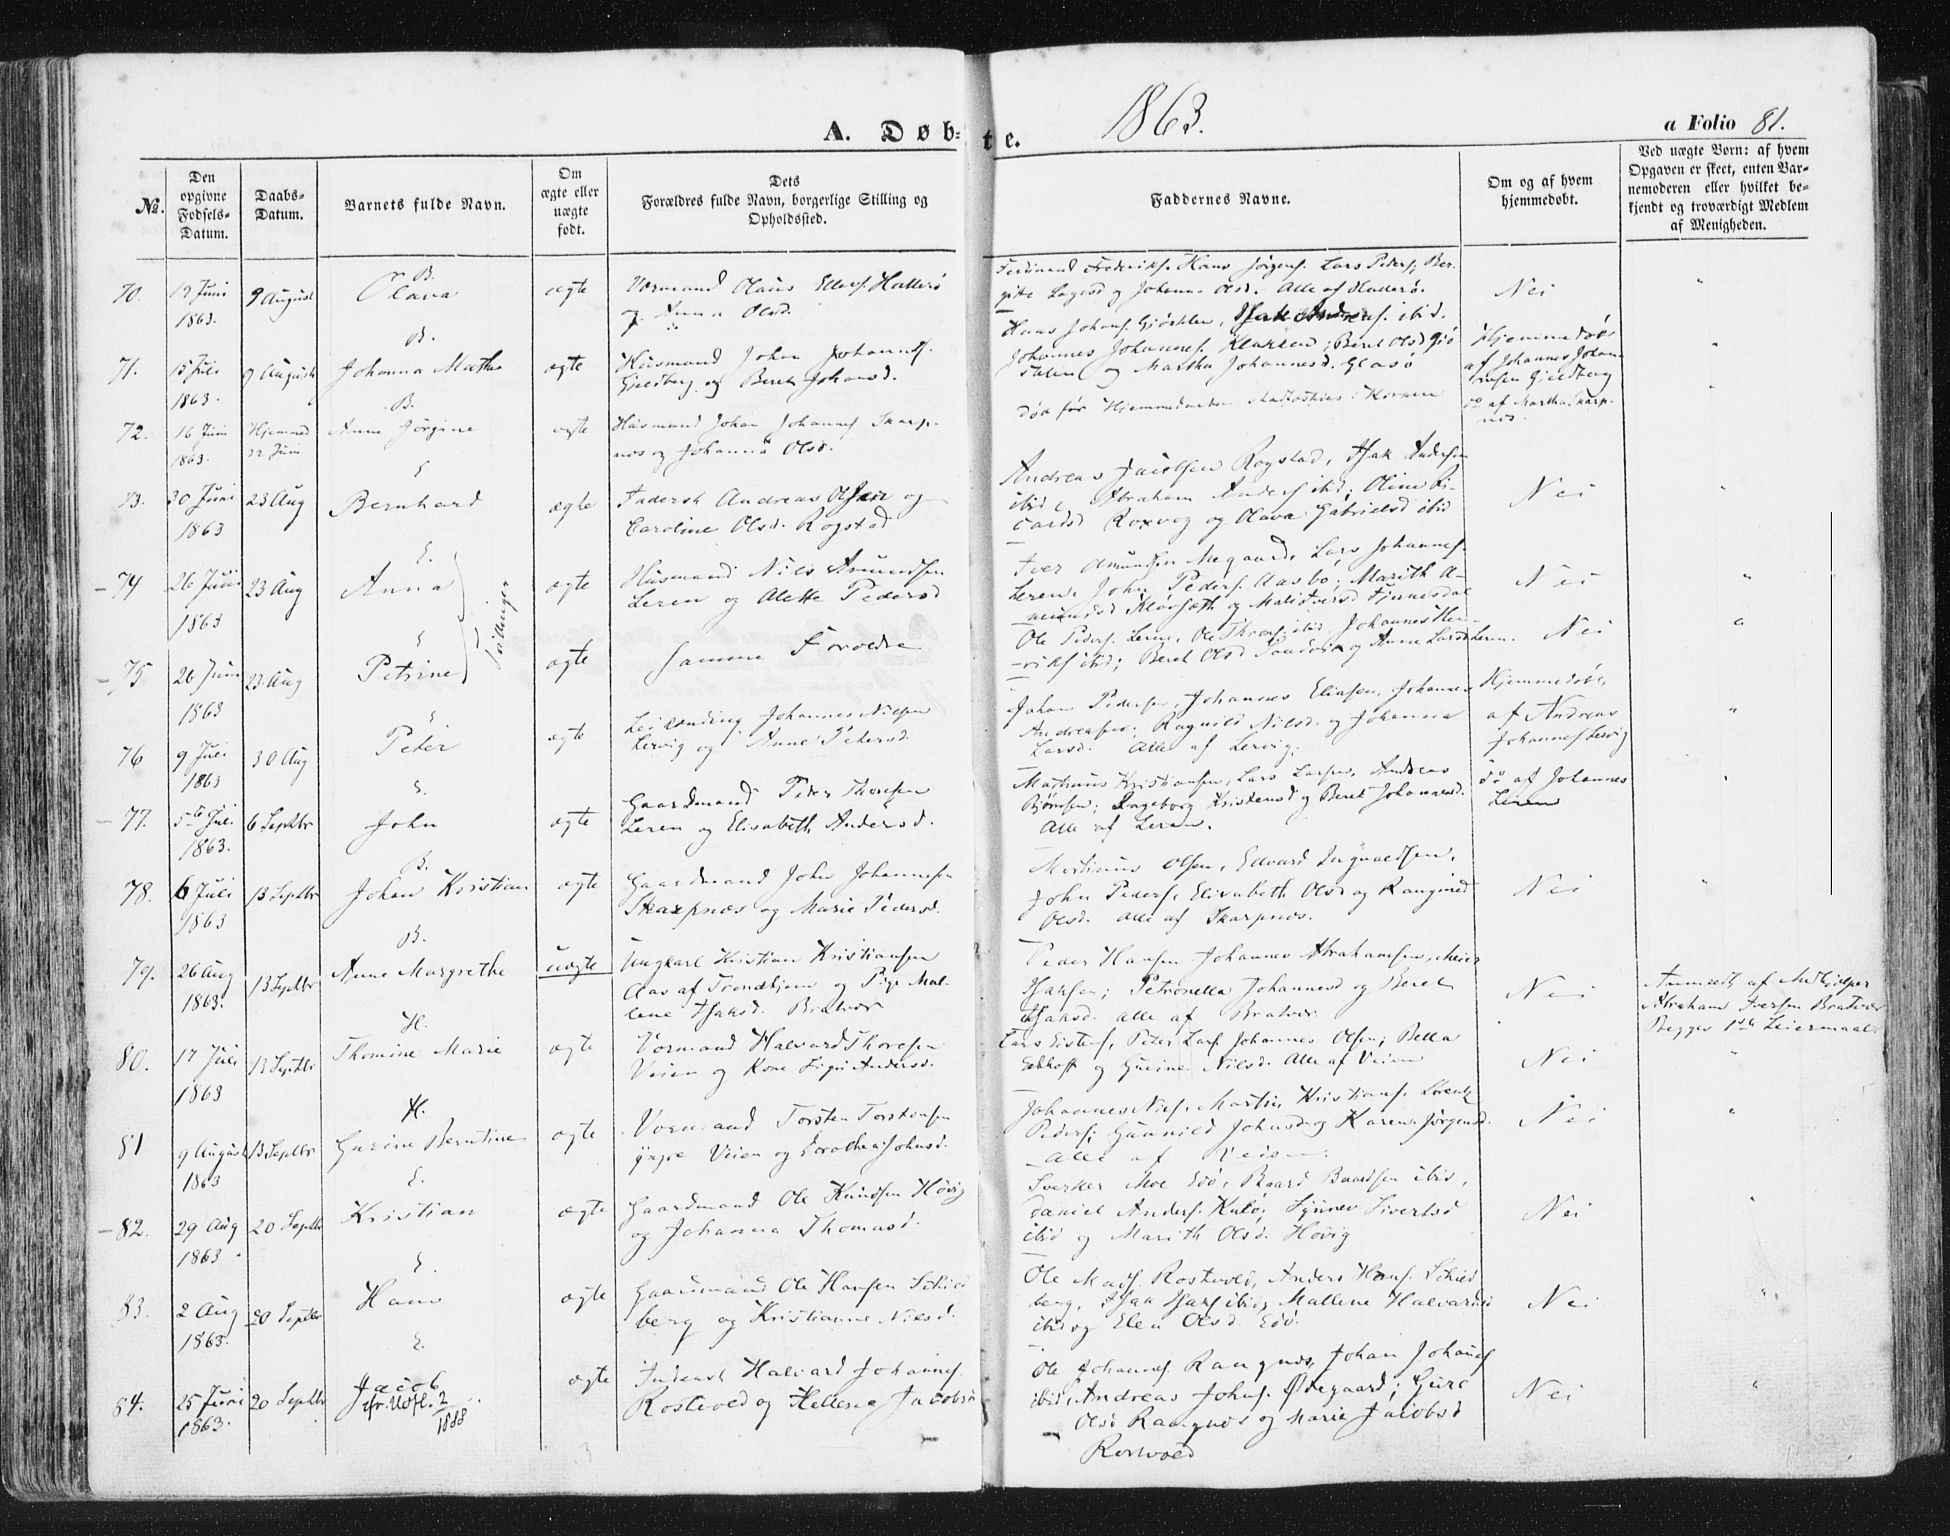 A. Døbte.
1863.
a Folio 81.
No.
Den opgivne Fødsels-Datum.
Daabs-Datum.
Barnets fulde Navn.
Om ægte eller uægte født.
Dets Forældres fulde Navn, borgerlige Stilling og Opholdssted.
Faddernes Navne.
Om og af hvem hjemmedøbt.
Ved uægte Børn: af hvem Opgaven er skeet, enten Barnemoderen eller hvilket bekjendt og troværdigt Medlem af Menigheden.
70. 19 Juni 1863. 9 August B. Olava ægte
Vormand Olaus Ellevs. Hallerø
og Anna Olsd.
Ferdinand Frederiks. Hans Jörgens. Lars Peders; Ber-
gitte og Johanna Olsd. Alle af Hallerø.
Nei "
71. 15 Juli 1863. 9 August B. Johanna Mathea ægte
Husmand Johan Johannes.
Gjeldberg og Beret Johansd.
Hans Johans. Isak Anders. ibid.
Johannes Johannes. Beret Olsd
og Martha Johannesd. Glasø
Hjemmedøbt
af Johannes Johan
nesen Gjeldberg "
72. 16 Juni 1863. Hjemmed 22 Juni B. Anne Jörgine ægte
Husmand Johan Johannes Skarp-
nes og Johanna Olsd.
død før Hjemmedaaben stadfæstedes i Kirken
do af Martha Skarp-
nes "
73. 30 Juni 1863 23 Aug E Bernhard ægte
Inderst Andreas Olsen og
Caroline Olsd. Rogstad
Andreas Jacobsen Rogstad, Isak Andersen
ibid, Abraham Anders ibid; Oline Ri-
cardsd Roxvog og Olava Gabrielsd ibid
Nei "
74 26 Juni 1863 23 Aug E. Anna ægte
Tvillinger
Husmand Nils Amundsen
Leren og Alette Pedersd
Iver Amundsen Megaard, Lars Johannes.
Leren, John Peders. Aasbø; Marith A-
mundsd og Mali Iversd
Nei "
75 26 Juni 1863 23 Aug E Petrine ægte
Samme Forældre
Ole Peders. Leren, Ole ibid, Johannes Hen-
riks ibid; Beret Olsd og Anne Larsd Leren.
Nei "
76 9 Juli 1863 30 Aug E Peter ægte
Leilænding Johannes Nilsen
Lervig og Anne Petersd.
Johan Pedersen, Johannes Eliasen, Johannes
Andreasen; Ragnild Nilsd. og Johanna
Larsd. Alle af Lervig.
Hjemmedøbt,
af Andreas
Johannes Lervig "
77. 5 Juli 1863. 6 Septbr E. John ægte
Gaardmand Peder Thoresen
Leren og Elisabeth Andersd.
Mathias Kristiansen, Lars Larsen, Andreas
Bjørnsen; Ingeborg Kristensd og Beret Johannesd.
Alle af Leren.
do af Johannes
Leren "
78. 6 Juli 1863 13 Septbr B. Johan Kristian ægte
Gaardmand John Johannesen
Skarpnes og Marie Pedersd.
Martinus Olsen, Edvard Ingvaldsen,
John Peders. Elisabeth Olsd og Rangnild
Olsd. Alle af Skarpnes.
Nei "
79. 26 Aug 1863. 13 Septbr B. Anne Margrethe uægte
Ungkarl Kristian Kristiansen
Aas af Trondhjem og Pige Mal-
lene Isaksd. Bratvær
Peder Hansen Johannes Abrahamsen, Meier
Isaksen; Petronella Johannesd og Beret
Isaksd. alle af Bratvær
Nei
Anmeldt af Medhjelper
Abraham Iversen Bratvær
Begges 1ste Leiermaal
80. 17 Juli 1863 13 Septbr H. Thomine Marie ægte
Vormand Halvard Thoresen
Veien og Kone Sigri Andersd.
Lars Sivers, Peter Lars Johannes Olsen; Bella
og Gurine Nilsd. Alle af Veien
Nei "
81 9 August 1863 13 Septbr H. Gurine Berntine ægte
Vormand Torsten Torstensen
yngre Veien og Dorothea Johnsd.
Johannes Niels, Martin Kristians. Lorentz
Peders; Gunnild Johnsd og Karen Jørgensd.
Alle af Veien.
Nei "
82. 29 Aug 1863. 20 Septbr E. Kristian ægte
Gaardmand Ole Knudsen Høvig
og Johanna Thomasd.
Sverker Moe Edø, Baard Baardsen ibid,
Daniel Anders. Kulø; Synnev Sivertsd
ibid og Marith Olsd. Høvig
Nei "
83. 2 Aug 1863. 20 Septbr E. Hans ægte
Gaardmand Ole Hansen Schied
berg og Kristianne Nilsd.
Ole Mads. Rostvold, Anders Hans. Schied
berg, Isak Isaks ibid; Mallene Halvardsd
ibid og Elen Olsd. Edø.
Nei "
84. 25 Juni 1863. 20 Septbr E. Jacob ægte
cfr. Udfl. 2/1888
Inderst Halvard Johannes.
Rostvold og Hellena Jacobsd
Ole Johannes. Rangnes, Johan Johannes
ibid, Andreas Johns. Ødegaard; Guro
Olsd Rangnes og Marie Jacobsd
Rostvold
Nei "